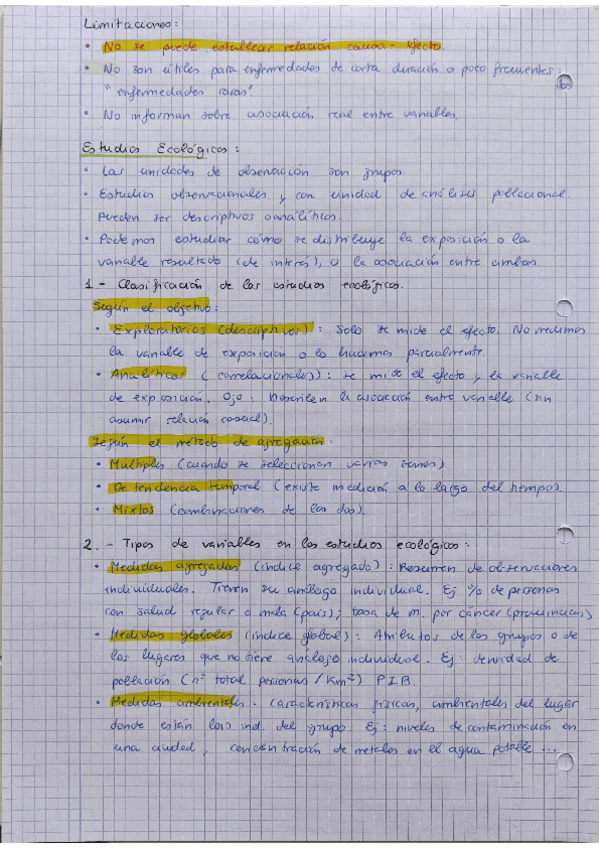 Limitaciones:
• No se puede establecer relación causa - efecto.
• No son útiles para enfermedades de corta duración o poco frecuentes: las
"enfermedades raras"
• No informan sobre asociación real entre variables.
Estudios Ecológicos:
• Las unidades de observación son grupos.
• Estudios observacionales y con unidad de análisis poblacional.
Pueden ser descriptivos o analíticos.
• Podemos estudiar cómo se distribuye la exposición o la
variable resultado (de interés), o la asociación entre ambas.
1 - Clasificación de los estudios ecológicos.
Según el objetivo:
• Exploratorios (descriptivos): Solo se mide el efecto. No medimos
la variable de exposición o lo hacemos parcialmente.
• Analíticos (correlacionales): se mide el efecto y la variable
de exposición. Ojo: Describen la asociación entre variable (sin
asumir relación causal).
Según el método de agregación:
• Múltiples (cuando se seleccionan varias zonas)
• De tendencia temporal (existe medición a lo largo del tiempo).
• Mixtos (combinaciones de los dos).
2. - Tipos de variables en los estudios ecológicos:
• Medidas agregadas (índice agregado): Resumen de observaciones
individuales. Tienen su análogo individual. Ej % de personas
con salud regular o mala (país); tasa de m. por cáncer (provincias)
• Medidas globales (índice global): Atributos de los grupos o de
los lugares que no tiene análogo individual. Ej: densidad de
población (nº total personas / Km²) PIB.
• Medidas ambientales. Características físicas, ambientales del lugar
donde están los ind. del grupo. Ej: niveles de contaminación en
una ciudad, concentración de metales en el agua potable ...